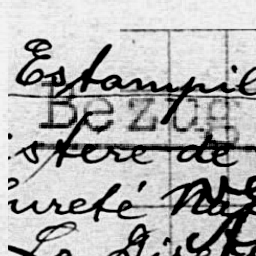 Estampil
Bezug
istère de
ureté Na
Le Dire